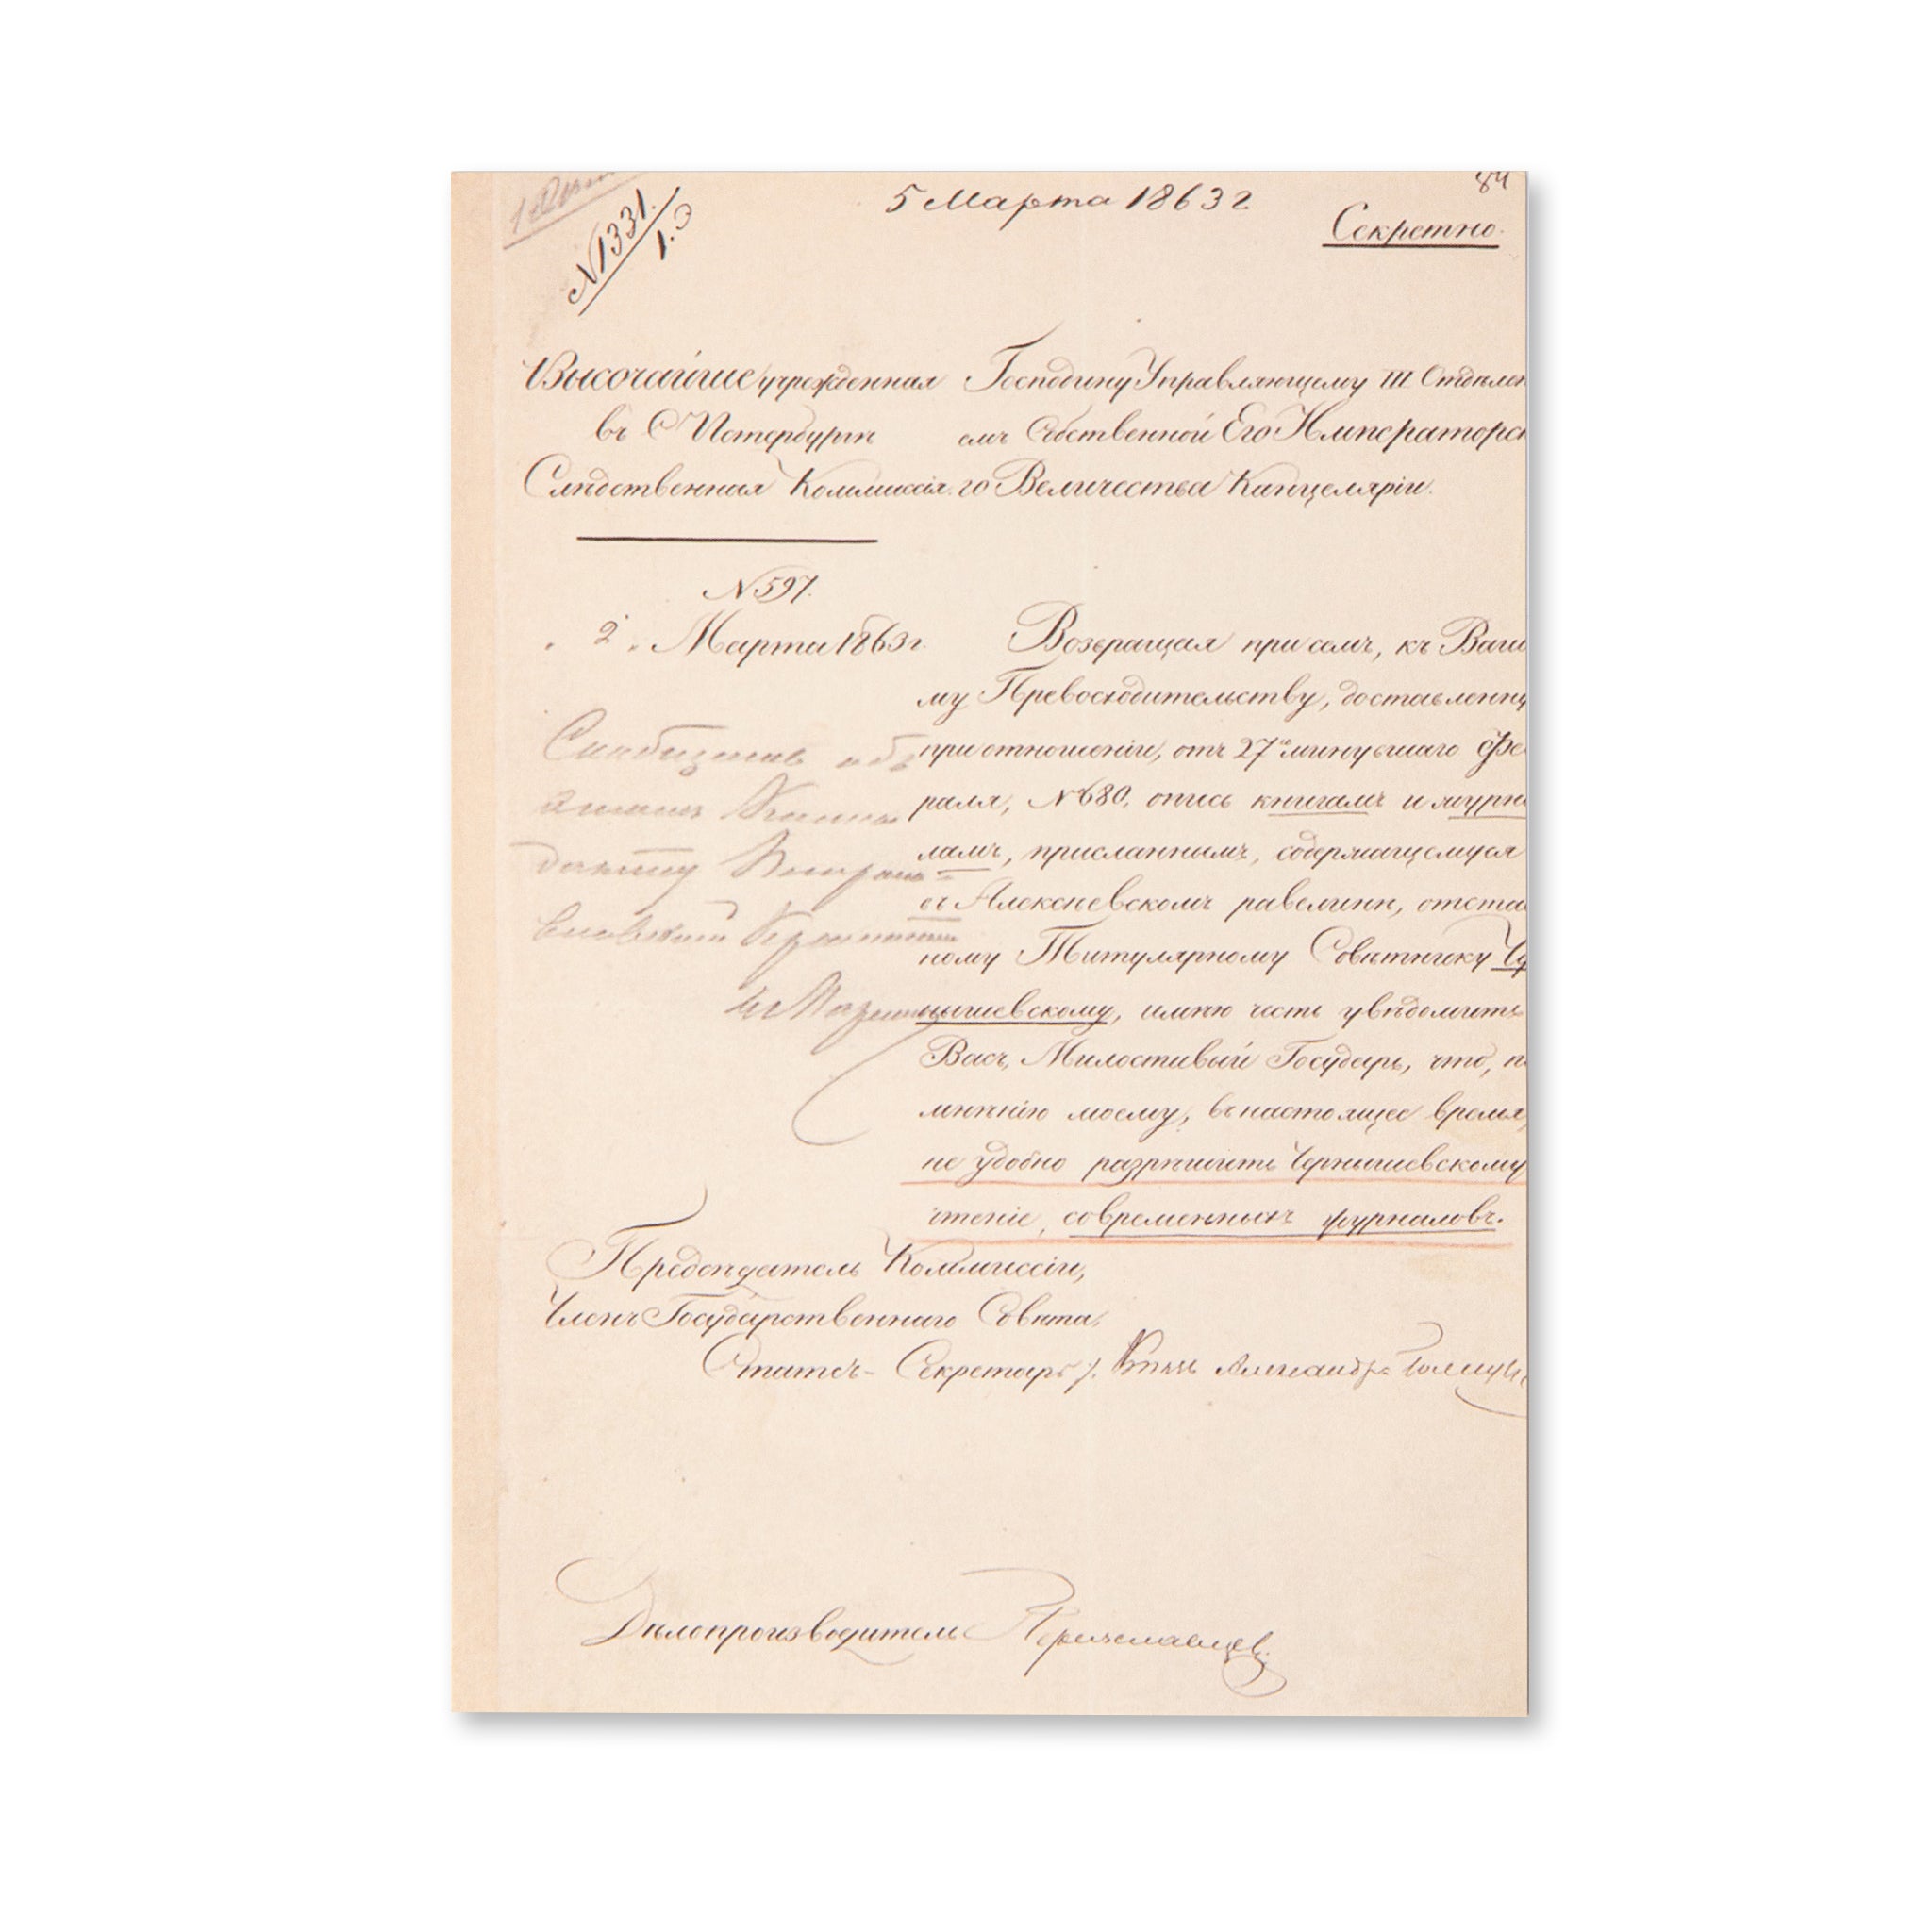 84
5 Марта 1863 г
Секретно.
№1331.
1. Э
Высочайше учрежденная
въ С Петербургѣ
Слѣдственная Коммиссія.
Господину Управляющему III Отдѣлен
емъ Собственной Его Императорск
го Величества Канцеляріи.
№ 597.
„ 2 „ Марта 1863 г.
Возвращая при семъ, къ Ваше
му Превосходительству, доставленну
при отношеніи, отъ 27го минувшаго Фе
раля, № 680, опись книгамъ и журна
ламъ, присланнымъ, содержащемуся
въ Алексѣевскомъ равелинѣ, отстав
ному Титулярному Совѣтнику Че
нышевскому, имѣю честь увѣдомить
Васъ, Милостивый Государь, что, п
мнѣнію моему, въ настоящее время,
не удобно разрѣшить Чернышевскому
чтеніе современныхъ журналовъ.
Сообщить объ
этомъ Комен
данту Петропав
ловской Крѣпости
4 Марта
Предсѣдатель Коммиссіи,
Членъ Государственнаго Совѣта,
Статсъ-Секретарь, Князь Александръ Голицы
Дѣлопроизводитель